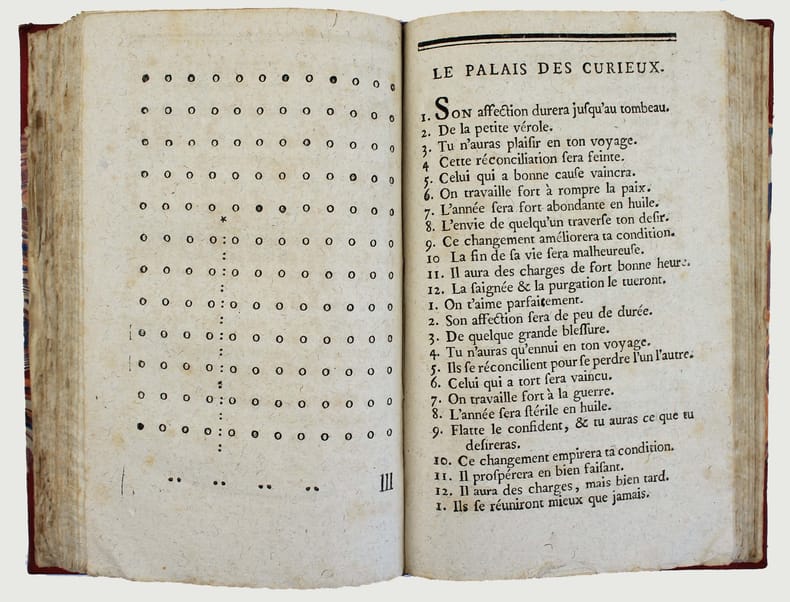 III
LE PALAIS DES CURIEUX.
1. SON affection durera juſqu'au tombeau.
2. De la petite vérole.
3. Tu n'auras plaiſir en ton voyage.
4 Cette réconciliation ſera feinte.
5. Celui qui a bonne cauſe vaincra.
6. On travaille fort à rompre la paix.
7. L'année ſera fort abondante en huile.
8. L'envie de quelqu'un traverſe ton deſir.
9. Ce changement améliorera ta condition.
10 La fin de ſa vie ſera malheureuſe.
11. Il aura des charges de fort bonne heure.
12. La ſaignée & la purgation le tueront.
1. On t'aime parfaitement.
2. Son affection ſera de peu de durée.
3. De quelque grande bleſſure.
4. Tu n'auras qu'ennui en ton voyage.
5. Ils ſe réconcilient pour ſe perdre l'un l'autre.
6. Celui qui a tort ſera vaincu.
7. On travaille fort à la guerre.
8. L'année ſera ſtérile en huile.
9. Flatte le confident, & tu auras ce que tu
deſireras.
10. Ce changement empirera ta condition.
11. Il proſpérera en bien faiſant.
12. Il aura des charges, mais bien tard.
1. Ils ſe réuniront mieux que jamais.